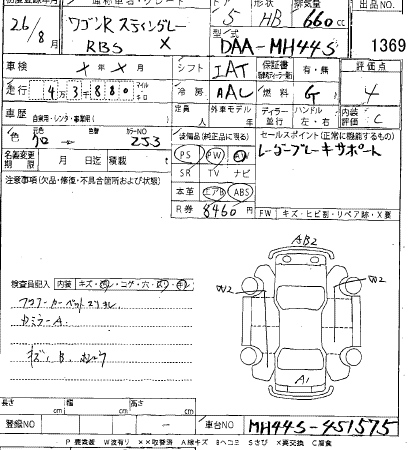 初度登録年月 通称車名・グレード ドア 形状 排気量 出品NO.
26/8月 ワゴンR スティングレー 5 HB 660cc
RBS X 型式 DAA-MH44S 1369
車検 X年X月 シフト IAT 保証書 有・無 評価点
走行 4万3千880 マイル キロ 冷房 AAC 燃料 G 4
車歴 自家用・レンタ・事業用( ) 定員 人 外車モデル 年 ディーラー 並行 ハンドル 左・右 内装評価 C
色 元色 クロ 色替 カラーNO ZJ3 装備品(純正品に限る) セールスポイント(正常に機能するもの)
名義変更期限 月 日迄 積載 t PS PW AW レーダーブレーキサポート
SR TV ナビ
注意事項(欠品・修復・不具合箇所および状態) 本革 エアB ABS
R券 8460円 FW キズ・ヒビ割・リペア跡・X要
AB2
検査員記入 内装 キズ・汚レ・コゲ・穴・
W2 W2
フロアカーペット
カミラーA
キズ、B、
A1
長さ cm 幅 cm 高さ cm
登録NO - 車台NO MH44S-451575
P 要塗装 W 波有り XX 取替済 A 線キズ B ヘコミ S さび X 要交換 C 腐食